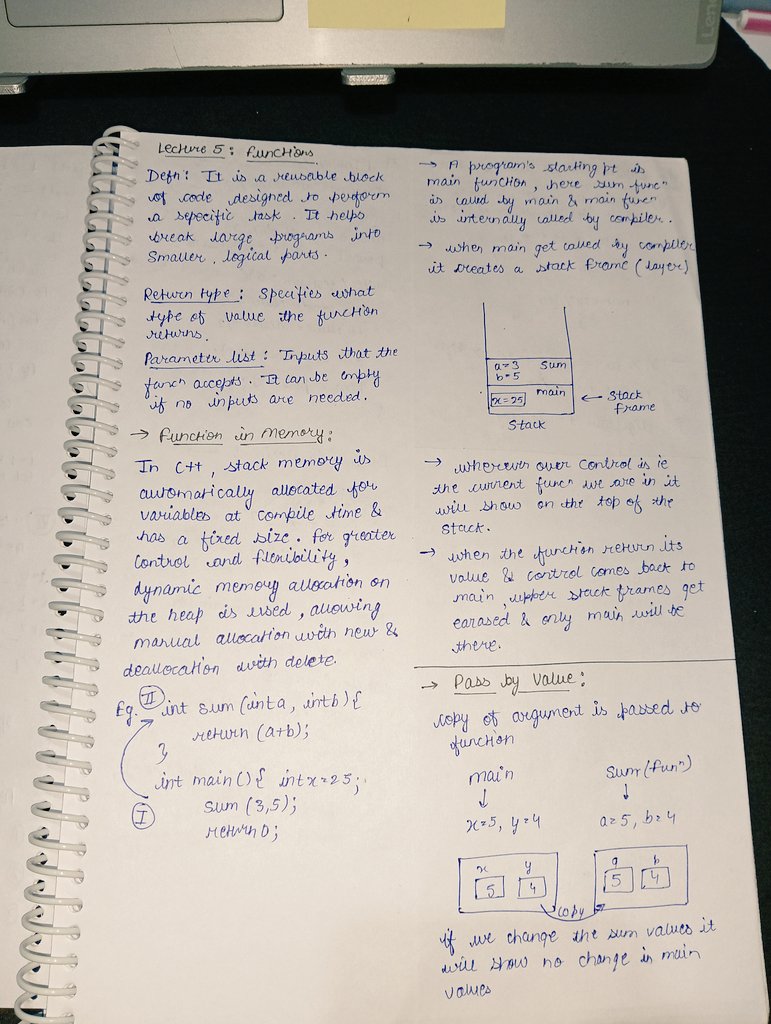 Lecture 5: Functions
Defn: It is a reusable block
of code designed to perform
a sepecific task. It helps
break large programs into
Smaller, logical parts.
Return type: Specifies what
type of value the function
returns.
Parameter list: Inputs that the
funcn accepts. It can be empty
if no inputs are needed.
→ Function in Memory:
In C++, stack memory is
automatically allocated for
variables at compile time &
has a fixed size. For greater
control and flexibility,
dynamic memory allocation on
the heap is used, allowing
manual allocation with new &
deallocation with delete.
Eg. II int sum (int a, int b) {
return (a+b);
}
int main() { int x=25;
I sum (3,5);
return 0;
→ A program's starting pt is
main function, here sum funcn
is called by main & main funcn
is internally called by compiler.
→ when main get called by compiler
it creates a stack frame (layer)
a=3 sum
b=5
x=25 main
← Stack
frame
Stack
→ wherever over control is ie
the current funcn we are in it
will show on the top of the
stack.
→ when the function return its
value & control comes back to
main, upper stack frames get
earased & only main will be
there.
→ Pass by Value:
copy of argument is passed to
function
main sum (funn)
↓ ↓
x=5, y=4 a=5, b=4
x y a b
5 4 5 4
copy
if we change the sum values it
will show no change in main
values
Lenovo